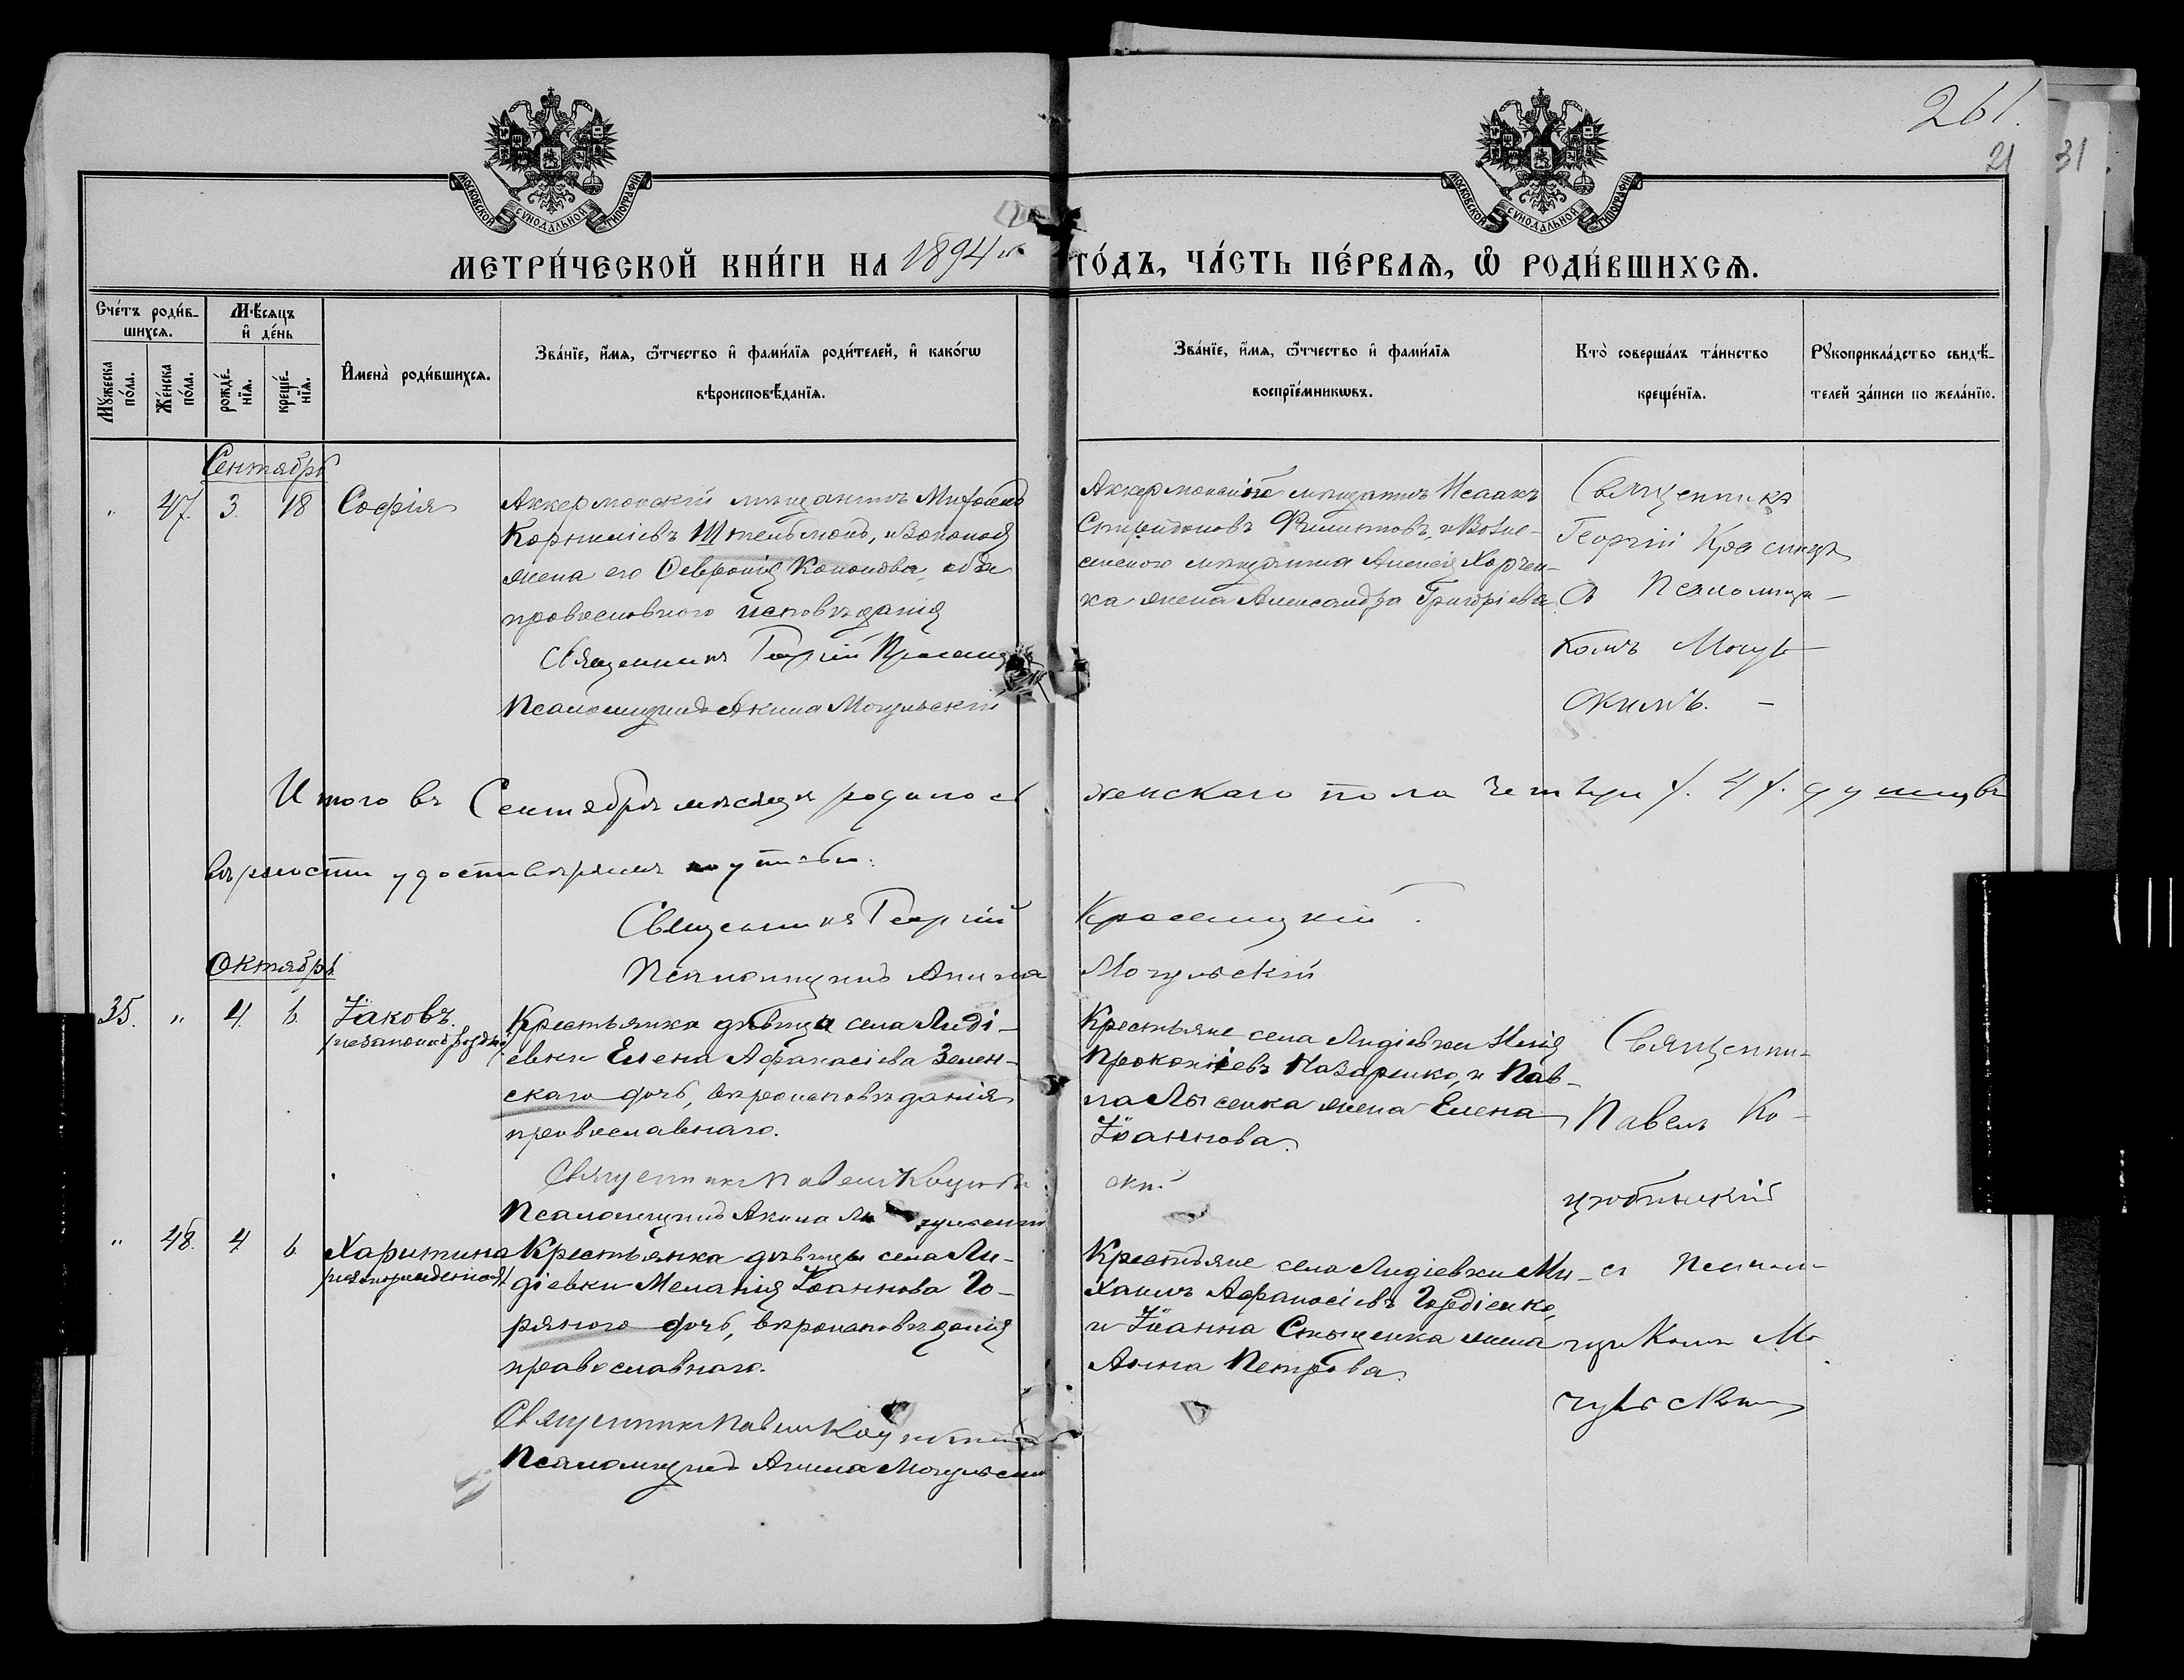 261.
21
31
МОСКОВСКОЙ СѴНОДАЛЬНОЙ ТИПОГРАФІИ
МОСКОВСКОЙ СѴНОДАЛЬНОЙ ТИПОГРАФІИ
МЕТРИ́ЧЕСКОЙ КНИ́ГИ НА 1894й ГО́ДЪ, ЧА́СТЬ ПЕ́РВАѦ, Ѡ РОДИ́ВШИХСѦ.
Сче́тъ роди́в-
шихсѧ.
Мꙋжеска по́ла.
Же́нска по́ла.
Мѣ́сяцъ и де́нь
рожде́-
нїѧ.
креще́-
нїѧ.
Имена̀ роди́вшихсѧ.
Зва́нїе, и́мѧ, ѻ́тчество и фами́лїѧ роди́телей, и како́гѡ
вѣроисповѣ́данїѧ.
Зва́нїе, и́мѧ, ѻ́тчество и фами́лїѧ
воспрїе́мникѡвъ.
Кто̀ соверша́лъ та́инство
креще́нїѧ.
Рꙋкоприкла́дство свидѣ́-
телей за́писи по жела́нїю.
Сентябрь
" 47. 3. 18 Софія
Аккерманскій мѣщанинъ
Корниліевъ
жена его Февронія Кононова, оба
православнаго исповѣданія
Священникъ Георгій
Псаломщикъ Акила Могульскій
Аккерманскій мѣщанинъ Исаакъ
Спиридоновъ Филиповъ, и Возне-
сенскаго мѣщанина Алексія Харчен-
ка жена Александра Григоріева.
Священникъ
Георгій
съ Псаломщи-
комъ Могуль-
скимъ. -
Итого въ Сентябрѣ мѣсяцѣ родилось женскаго пола четыре /. 4 /. душ въ
вѣрности удостовѣряемъ
Священникъ Георгій Красницкій.
Псаломщикъ Акила Могульскій
Октябрь
35. " 4. 6. Іаковъ
Крестьянка дѣвица села Лиді-
евки Елена Афанасіева Зелен-
скаго дочь, вѣроисповѣданія
православнаго.
Священникъ Павелъ
Псаломщикъ Акила
Крестьяне села Лидіевки Илія
Прокопіевъ Назаренко, и Пав-
ла Лысенка жена Елена
Іоаннова.
Священни-
Павелъ Ко-
цюбинскій
" 48. 4. 6. Харитина
/незаконорожденная/
Крестьянка дѣвица села Ли-
діевки Меланія Іоаннова Го-
ряного дочь, вѣроисповѣданія
православнаго.
Священникъ Павелъ
Псаломщикъ Акила Могульскій
Крестьяне села Лидіевки Ми-
хаилъ Афанасіевъ Гордіенко,
и Іоанна Стыценка жена
Анна Петрова.
съ Псалом-
щикомъ Мо-
гульскимъ